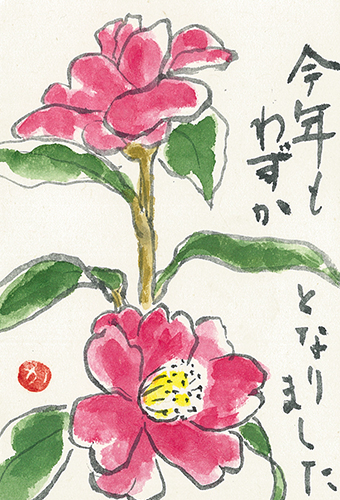 今年も
わずか
となり
ました